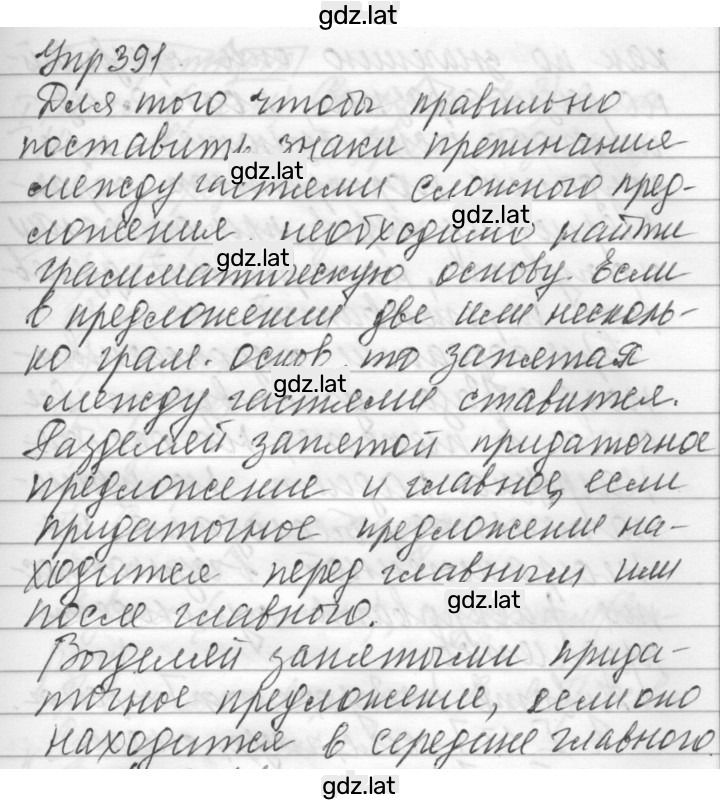 gdz.lat
Упр 391.
Для того чтобы правильно
поставить знаки препинания
gdz.lat
между частями сложного пред-
gdz.lat
ложения необходимо найти
gdz.lat
грамматическую основу. Если
в предложении две или несколь-
ко грам. основ то запятая
gdz.lat
между частями ставится.
Разделяй запятой придаточное
предложение и главное, если
придаточное предложение на-
ходится перед главным или
gdz.lat
после главного.
Выделяй запятыми прида-
точное предложение, если оно
находится в середине главного
gdz.lat